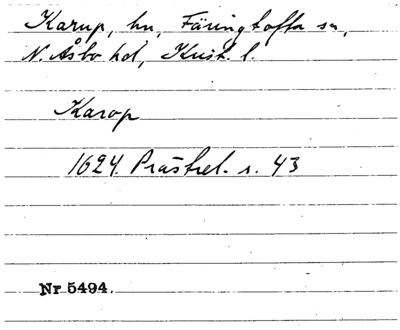 Karup, hn, Färingtofta sn,
N. Åsbo hd, Krist. l.
Karop
1624. Prästrel. s. 43
Nr 5494.